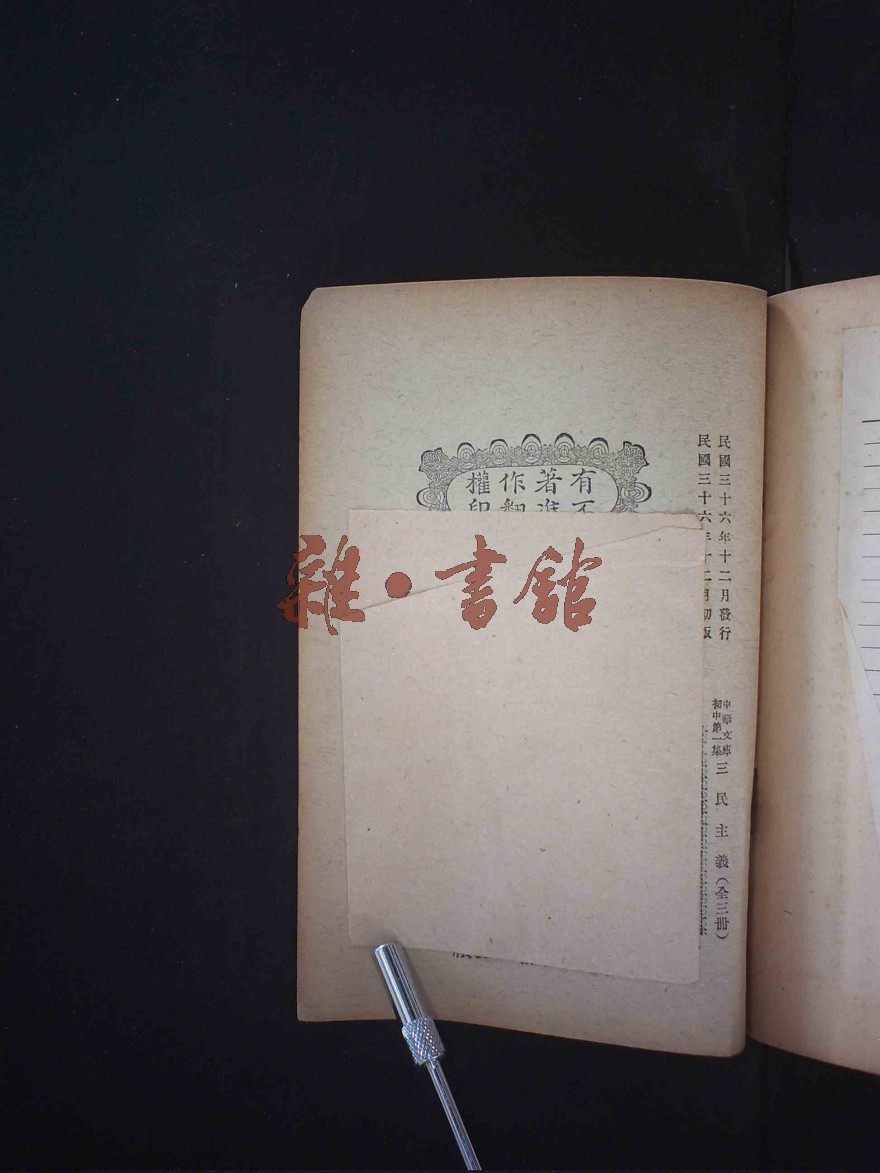 民國三十六年十二月發行
民國三十六年十二月初版
中華文庫
初中第一集
三民主義(全三冊)
有不
著准
作翻
權印
雜·書館